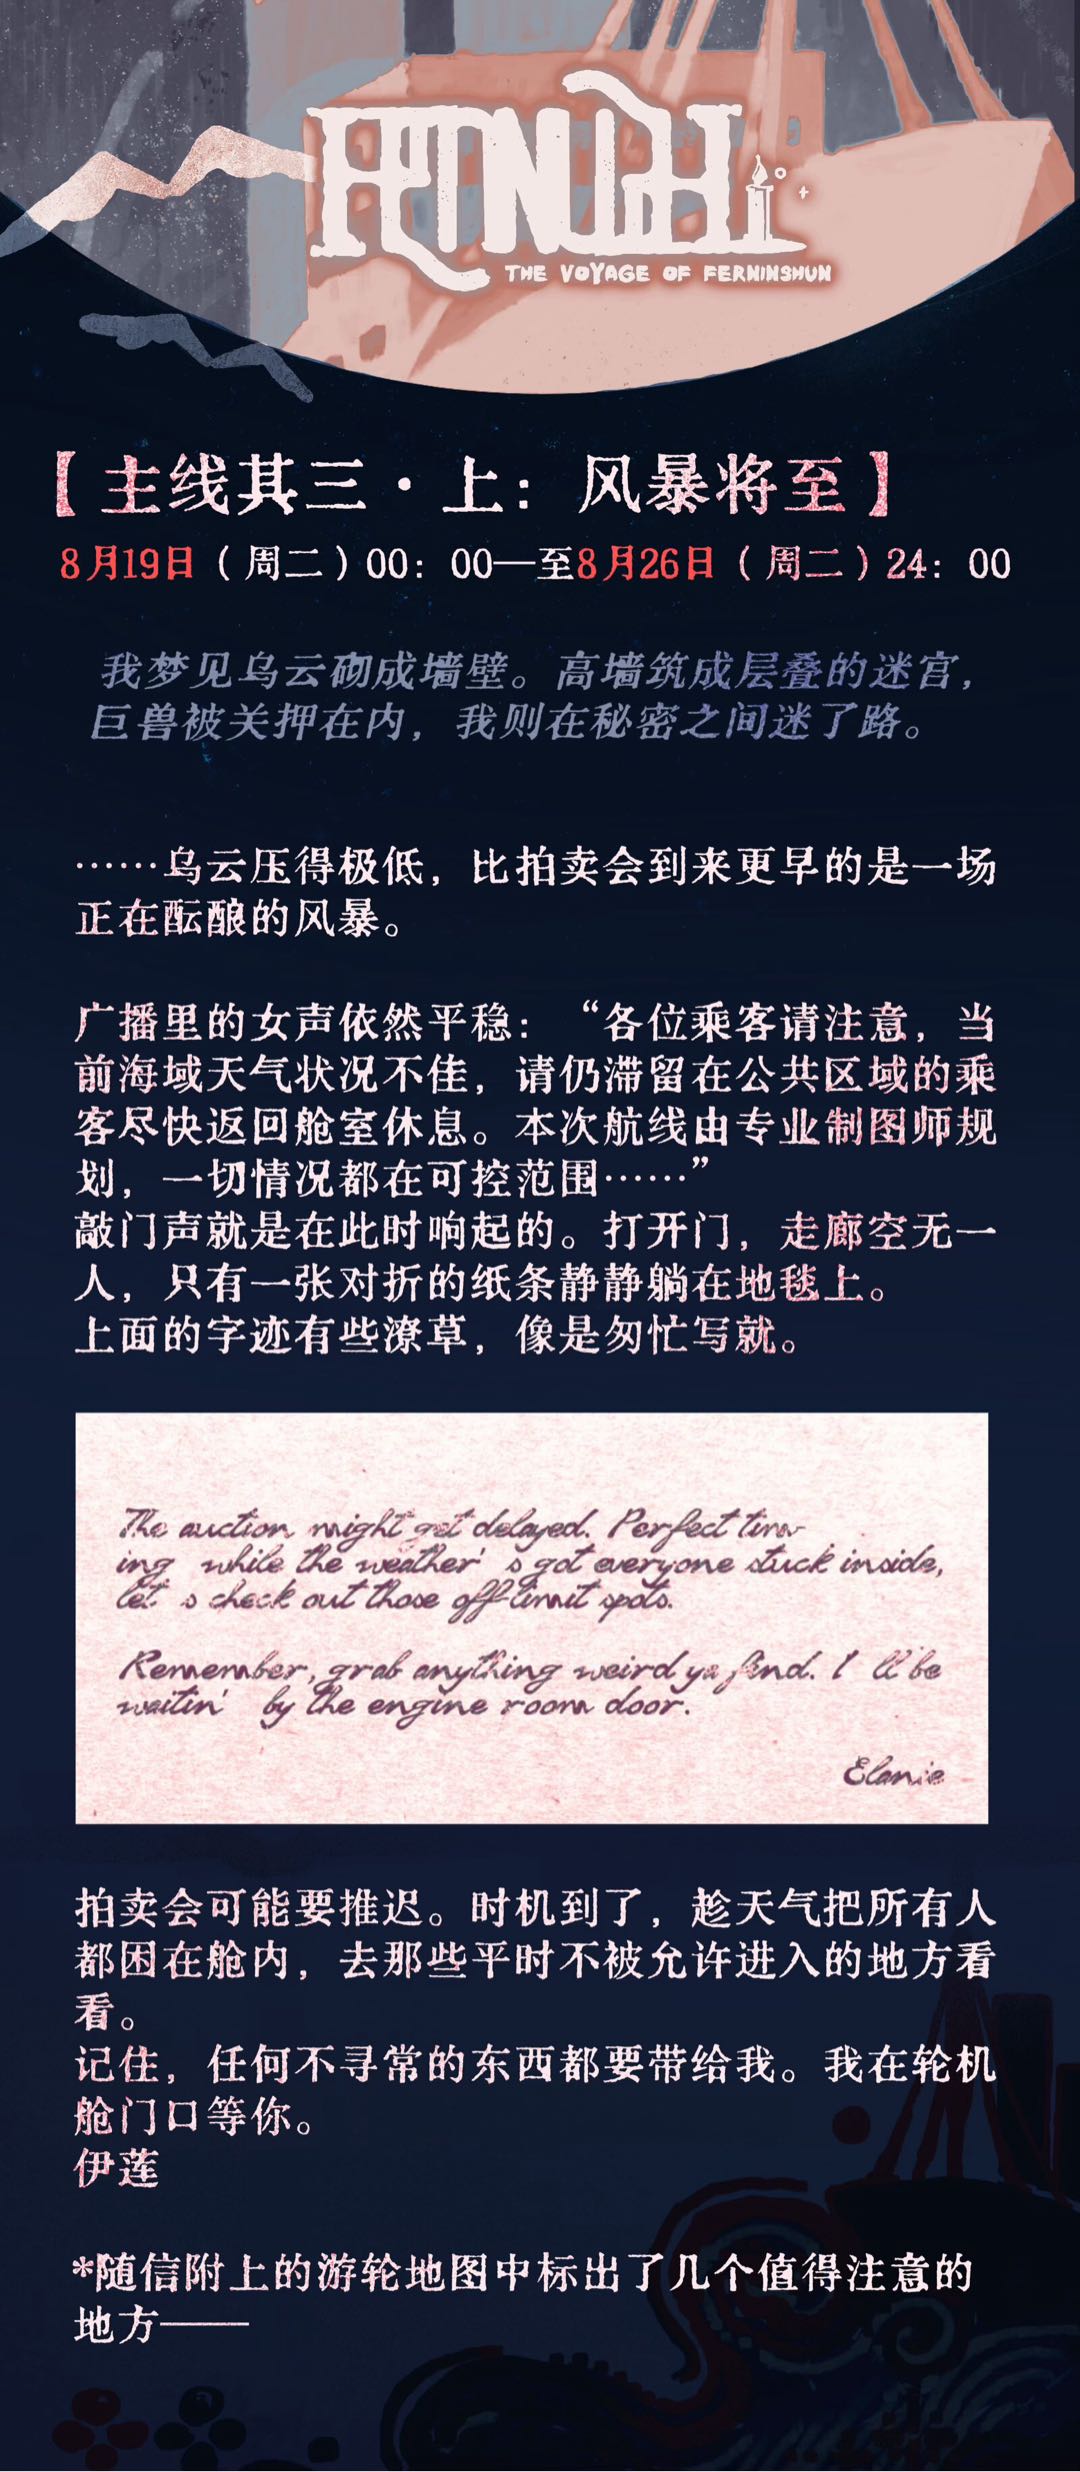 THE VOYAGE OF FERNINSHUN
【主线其三·上：风暴将至】
8月19日（周二）00：00—至8月26日（周二）24：00
我梦见乌云砌成墙壁。高墙筑成层叠的迷宫，
巨兽被关押在内，我则在秘密之间迷了路。
……乌云压得极低，比拍卖会到来更早的是一场
正在酝酿的风暴。
广播里的女声依然平稳：“各位乘客请注意，当
前海域天气状况不佳，请仍滞留在公共区域的乘
客尽快返回舱室休息。本次航线由专业制图师规
划，一切情况都在可控范围……”
敲门声就是在此时响起的。打开门，走廊空无一
人，只有一张对折的纸条静静躺在地毯上。
上面的字迹有些潦草，像是匆忙写就。
The auction might get delayed. Perfect tim-
ing while the weather' s got everyone stuck inside,
let' s check out those off-limit spots.
Remember, grab anything weird ya find. I' ll be
waitin' by the engine room door.
Elanie
拍卖会可能要推迟。时机到了，趁天气把所有人
都困在舱内，去那些平时不被允许进入的地方看
看。
记住，任何不寻常的东西都要带给我。我在轮机
舱门口等你。
伊莲
*随信附上的游轮地图中标出了几个值得注意的
地方——